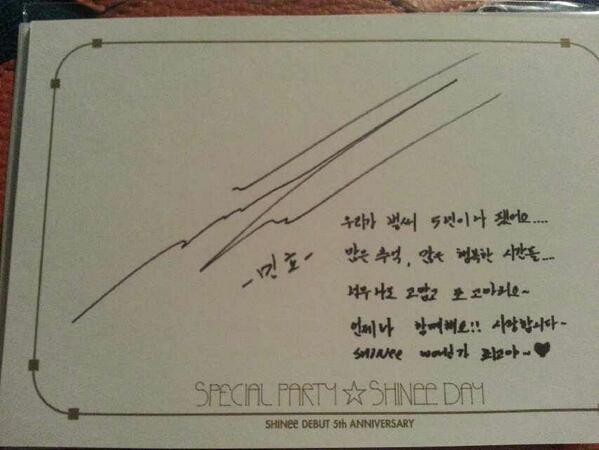 -민호-
우리가 벌써 5년이나 됐어요....
많은 추억, 많은 행복한 시간들....
너무나도 고맙고 또 고마워요~
언제나 함께해요!! 사랑합니다~
SHINee world가 최고야~♥
SPECIAL PARTY ☆ SHINEE DAY
SHINee DEBUT 5th ANNIVERSARY